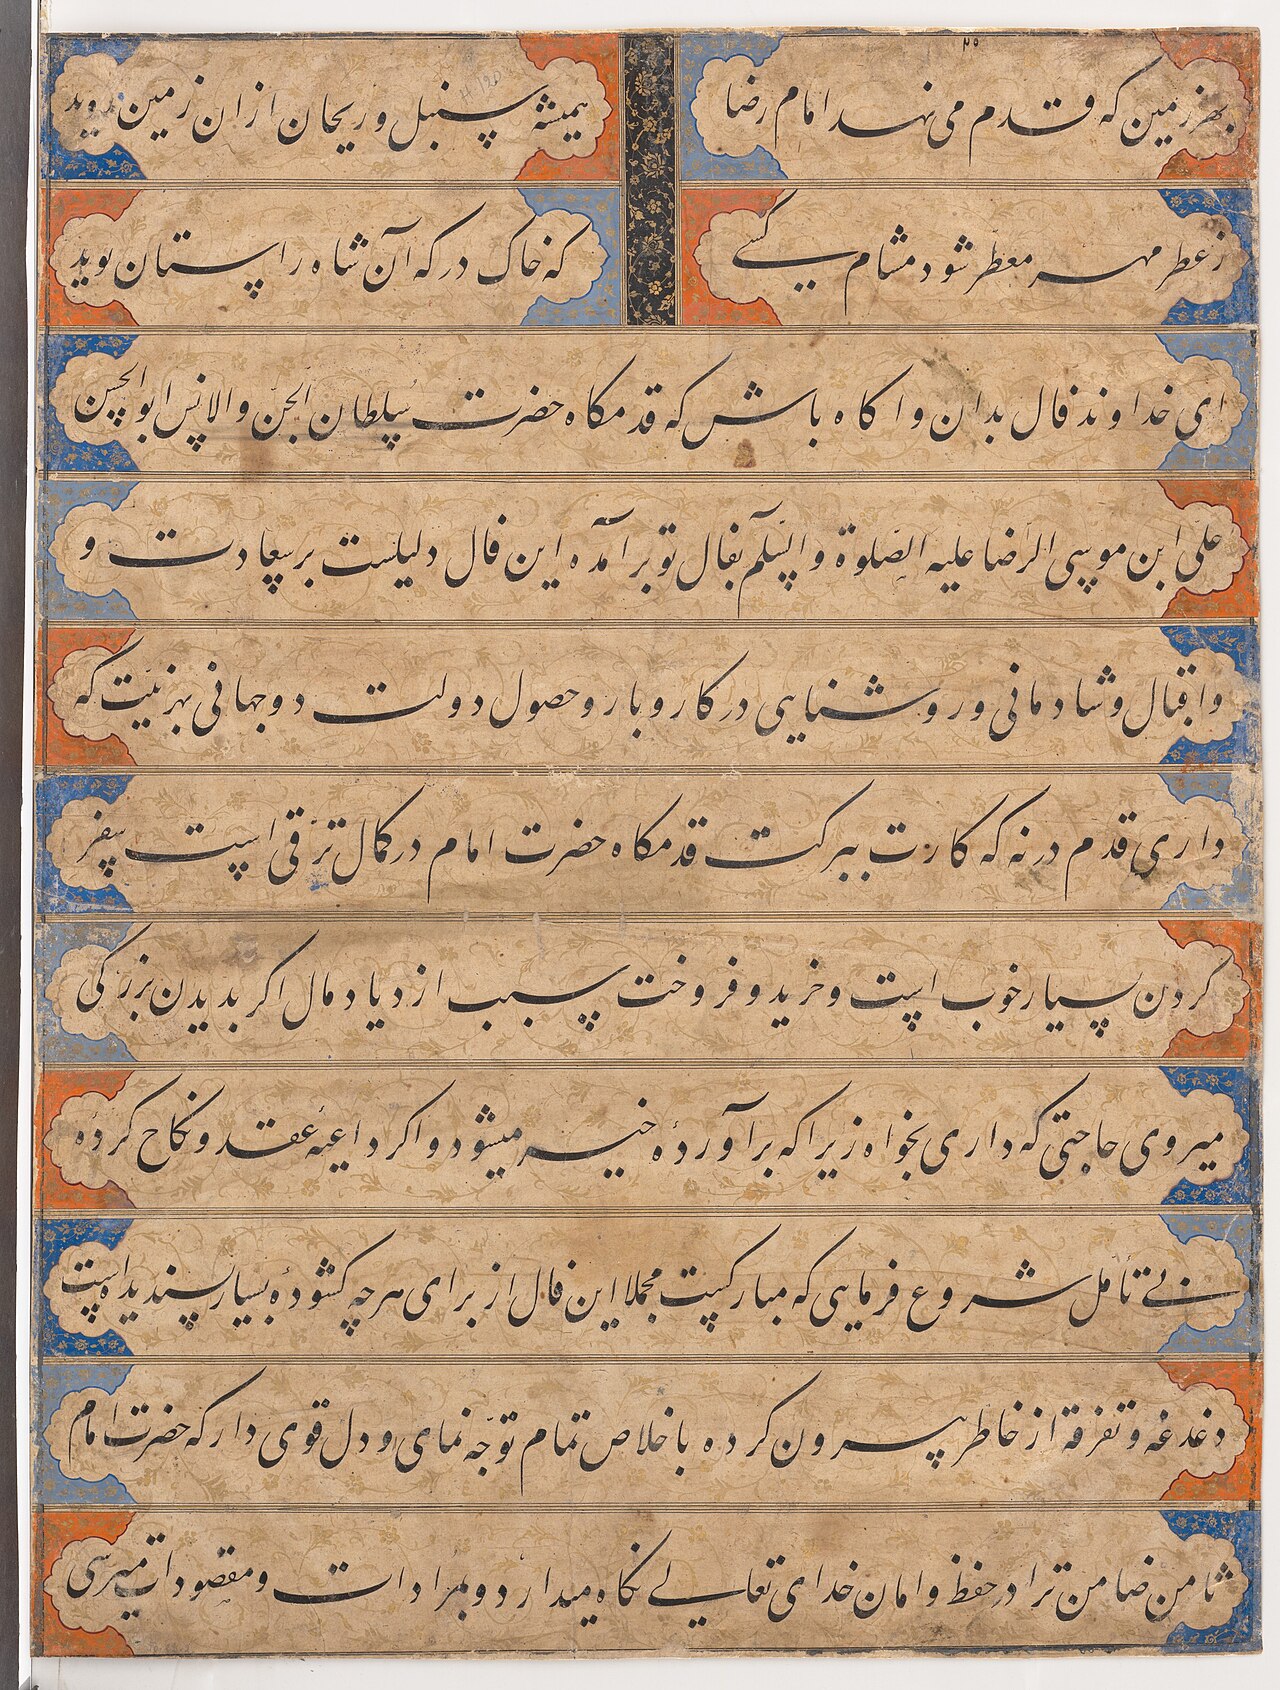 ۲۵
بهر زمین که قدم می نهد امام رضا
همیشه سنبل و ریحان ازان زمین روید
ز عطر مهر معطر شود مشام کسی
که خاک درکه آن شاه راستان بوید
ای خداوند فال بدان و اکاه باش که قدمکاه حضرت سلطان الجن والانس ابوالحسن
علی ابن موسی الرضا علیه الصلوة والسلم بفال تو برآمده این فال دلیلست بر سعادت و
و اقبال و شادمانی و روشنایی در کار و بار و حصول دولت دوجهانی بهر نیت که
داری قدم درنه که کارت ببرکت قدمکاه حضرت امام در کمال ترقی است سفر
کردن بسیار خوب است و خرید و فروخت سبب ازدیاد مال اکر بدیدن بزرکی
میروی حاجتی که داری بخواه زیرا که برآوردهٔ خیر میشود و اکر داعیهٔ عقد و نکاح کردهٔ
بی تأمل شروع فرمایی که مبارکست مجملا این فال از برای هرچه کشودهٔ بسیار پسندیده است
دغدغه و تفرقه از خاطر بیرون کرده باخلاص تمام توجه نمای و دل قوی دار که حضرت امام
ثامن ضامن ترا در حفظ و امان خدای تعالی نکاه میدارد و بمرادات و مقصودات میرسی